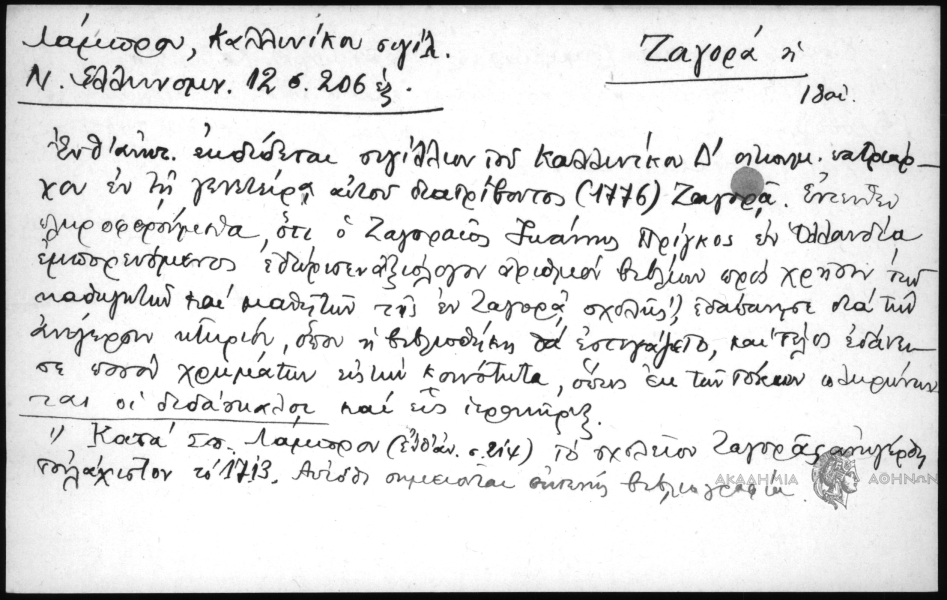 Λάμπρου, Καλλινίκου σιγίλ.
Ζαγορά ἡ
Ν. Ἑλληνομν. 12 σ. 206 ἑξ.
18 αἰ.
Ἐνθ' ἀνωτ. ἐκδίδεται σιγίλλιον τοῦ Καλλινίκου Δ' οἰκουμ. πατριάρ-
χου ἐν τῇ γενετείρᾳ αὐτοῦ διατρίβοντος (1776) Ζαγορᾷ. Ἐντεῦθεν
πληροφορούμεθα, ὅτι ὁ Ζαγοραῖος Ἰωάννης Πρίγκος ἐν Ὁλλανδίᾳ
ἐμπορευόμενος ἐδώρισεν ἀξιόλογον ἀριθμὸν βιβλίων πρὸς χρῆσιν τῶν
καθηγητῶν καὶ μαθητῶν τῆς ἐν Ζαγορᾷ σχολῆς¹⁾, ἐδαπάνησε διὰ τὴν
ἀνέγερσιν κτιρίου, ὅπου ἡ βιβλιοθήκη θὰ ἐστεγάζετο, καὶ τέλος ἐδάνει-
σε ποσὸν χρημάτων εἰς τὴν κοινότητα, ὅπως ἐκ τῶν τόκων πληρώνων-
ται οἱ διδάσκαλοι καὶ εἷς ἱεροκῆρυξ.
1) Κατὰ Σπ. Λάμπρον (ἐνθ' ἀν. σ. 214) τὸ σχολεῖον Ζαγορᾶς ἀνηγέρθη
τοὐλάχιστον τὸ 1713. Αὐτόθι σημειοῦται βιβλιογραφία.
ΑΚΑΔΗΜΙΑ ΑΘΗΝΩΝ